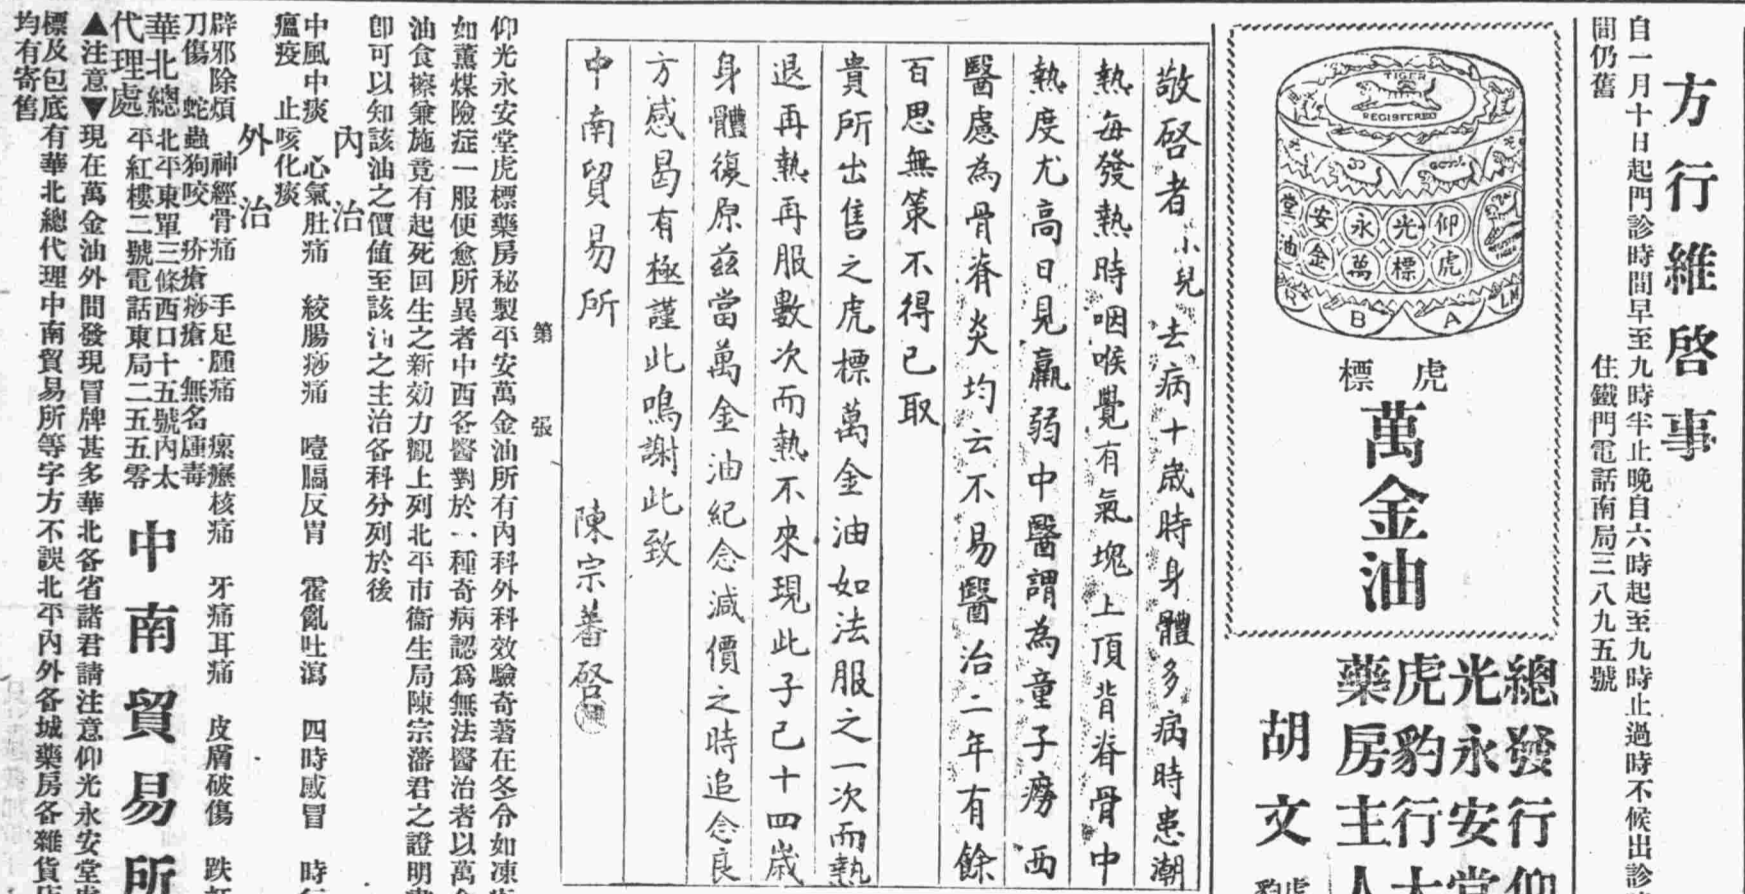 方行維啓事
自一月十日起門診時間早至九時半止晚自六時起至九時止過時不候出診
間仍舊
住鐵門電話南局三八九五號
TIGER
REGISTERED
仰光永安堂
虎標萬金油
B
A
L
虎標
萬金油
總發行仰
光永安堂
虎豹行大
藥房主人
胡文虎
敬啓者小兒去病十歲時身體多病時患潮
熱每發熱時咽喉覺有氣塊上頂背脊骨中
熱度尤高日見羸弱中醫謂為童子癆西
醫慮為骨脊炎均云不易醫治二年有餘
百思無策不得已取
貴所出售之虎標萬金油如法服之一次而熱
退再熱再服數次而熱不來現此子已十四歲
身體復原茲當萬金油紀念減價之時追念良
方感曷有極謹此鳴謝此致
中南貿易所
陳宗蕃啓
第 張
仰光永安堂虎標藥房秘製平安萬金油所有內科外科效驗奇著在冬令如凍
如薰煤險症一服便愈所異者中西各醫對於一種奇病認爲無法醫治者以萬金
油食擦兼施竟有起死回生之新効力觀上列北平市衞生局陳宗藩君之證明書
卽可以知該油之價值至該油之主治各科分列於後
內治
中風中痰 心氣肚痛 絞腸痧痛 噎膈反胃 霍亂吐瀉 四時感冒 時行
瘟疫 止咳化痰
外治
辟邪除煩 神經骨痛 手足腫痛 瘰癧核痛 牙痛耳痛 皮膚破傷 跌打
刀傷 蛇蟲狗咬 疥瘡痧瘡 無名腫毒
華北總代理處
北平東單三條西口十五號內太
平紅樓二號電話東局二五五零
中南貿易所
▲注意▼現在萬金油外間發現冒牌甚多華北各省諸君請注意仰光永安堂虎
標及包底有華北總代理中南貿易所等字方不誤北平內外各城藥房各雜貨店
均有寄舊